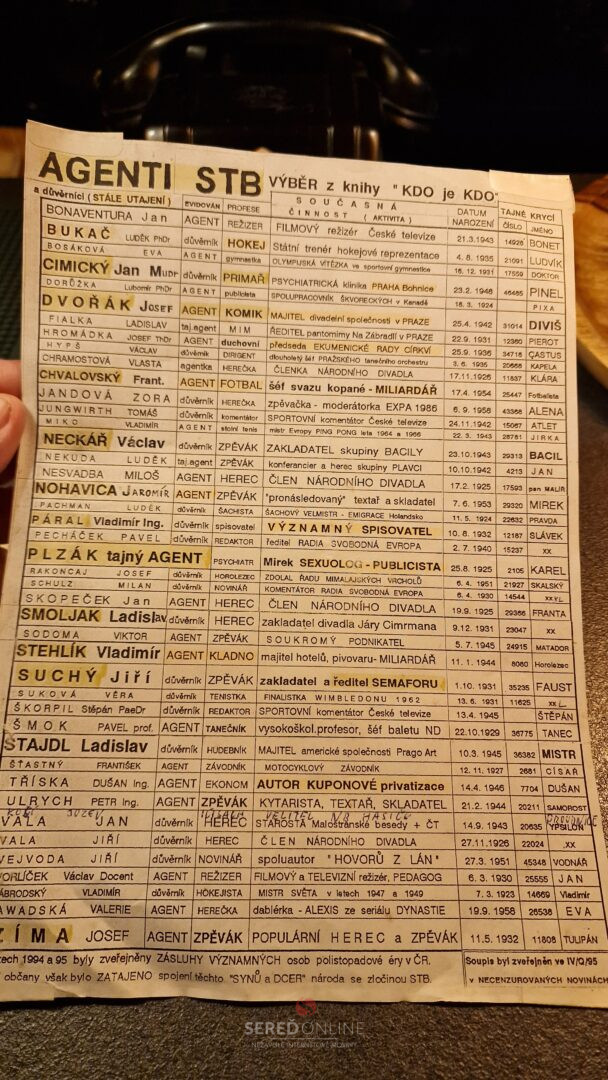 AGENTI STB VÝBĚR z knihy "KDO je KDO"
a důvěrníci (STÁLE UTAJENÍ) EVIDOVÁN PROFESE SOUČASNÁ ČINNOST (AKTIVITA) DATUM NAROZENÍ TAJNÉ ČÍSLO KRYCÍ JMÉNO
BONAVENTURA Jan AGENT REŽIZER FILMOVÝ režizér České televize 21.3.1943 14926 BONET
BUKAČ LUDĚK PhDr důvěrník HOKEJ Státní trenér hokejové reprezentace 4. 8. 1935 21091 LUDVÍK
BOSÁKOVÁ EVA AGENT gymnastika OLYMPIJSKÁ VÍTĚZKA ve sportovní gymnastice 16. 12. 1931 17559 DOKTOR
CIMICKÝ Jan Mudr důvěrník PRIMAŘ PSYCHIATRICKÁ klinika PRAHA Bohnice 23.2. 1948 46485 PINEL
DORŮŽKA Lubomír PhDr AGENT publicista SPOLUPRACOVNÍK ŠKVORECKÝCH v Kanadě 18. 3. 1924 PIXA
DVOŘÁK JOSEF AGENT KOMIK MAJITEL divadelní společnosti v PRAZE 25.4. 1942 31014 DIVIŠ
FIALKA LADISLAV taj.agent MIM ŘEDITEL pantomimy Na Zábradlí v PRAZE 22.9. 1931 12360 PIEROT
HROMÁDKA JOSEF THDr AGENT duchovní předseda EKUMENICKÉ RADY CÍRKVÍ 25.9. 1936 34718 ČASTUS
HYPŠ VÁCLAV důvěrník DIRIGENT dlouholetý šéf PRAŽSKÉHO tanečního orchestru 3.6. 1935 20668 KAPELA
CHRAMOSTOVÁ VLASTA agentka HEREČKA ČLENKA NÁRODNÍHO DIVADLA 17.11.1926 11837 KLÁRA
CHVALOVSKÝ Frant. AGENT FOTBAL šéf svazu kopané - MILIARDÁŘ 17.4. 1954 25447 Fotbalista
JANDOVÁ ZORA důvěrník HEREČKA zpěvačka - moderátorka EXPA 1986 6. 9. 1958 43368 ALENA
JUNGWIRTH TOMÁŠ důvěrník komentátor SPORTOVNÍ komentátor ČESKÉ TELEVIZE 24.11.1942 15067 ATLET
MIKO VLADIMÍR AGENT stolní tenis mistr Evropy PING PONG léta 1964 a 1966 22. 3. 1943 28781 JIRKA
NECKÁŘ Václav důvěrník ZPĚVÁK ZAKLADATEL skupiny BACILY 23.10.1943 29313 BACIL
NEKUDA LUDĚK taj.agent ZPĚVÁK konferancier a herec skupiny PLAVCI 10.10.1942 4213 JAN
NESVADBA MILOŠ AGENT HEREC ČLEN NÁRODNÍHO DIVADLA 17.2. 1925 17593 pan MALÍŘ
NOHAVICA JAROMÍR AGENT ZPĚVÁK "pronásledovaný" textař a skladatel 7. 6. 1953 29320 MIREK
PACHMAN LUDĚK důvěrník ŠACHISTA ŠACHOVÝ VELMISTR - EMIGRACE Holandsko 11. 5. 1924 22632 PRAVDA
PÁRAL Vladimír Ing. důvěrník spisovatel VÝZNAMNÝ SPISOVATEL 10. 8. 1932 12187 SLÁVEK
PECHÁČEK PAVEL důvěrník REDAKTOR ředitel RADIA SVOBODNÁ EVROPA 2. 7. 1940 15237 xx
PLZÁK tajný AGENT PSYCHIATR Mirek SEXUOLOG - PUBLICISTA 25.8. 1925 2105 KAREL
RAKONCAJ JOSEF důvěrník HOROLEZEC ZDOLAL ŘADU MIMALAJSKÝCH VRCHOLŮ 6.4. 1951 21927 SKALSKÝ
SCHULZ MILAN důvěrník NOVINÁŘ KOMENTÁTOR RADIA SVOBODNÁ EVROPA 6.4. 1930 14544
SKOPEČEK Jan AGENT HEREC ČLEN NÁRODNÍHO DIVADLA 19.9. 1925 29366 FRANTA
SMOLJAK Ladislav důvěrník HEREC zakladatel divadla Járy Cimrmana 9.12. 1931 23047 xx
SODOMA VIKTOR AGENT ZPĚVÁK SOUKROMÝ PODNIKATEL 5. 7. 1945 24915 MATADOR
STEHLÍK Vladimír AGENT KLADNO majitel hotelů, pivovaru- MILIARDÁŘ 11.1. 1944 8080 Horolezec
SUCHÝ Jiří důvěrník ZPĚVÁK zakladatel a ředitel SEMAFORU 1.10. 1931 35235 FAUST
SUKOVÁ VĚRA důvěrník TENISTKA FINALISTKA WIMBLEDONU 1962 13. 6. 1931 11625
ŠKORPIL Stěpán PaeDr důvěrník REDAKTOR SPORTOVNÍ komentátor České televize 13.4. 1945 ŠTĚPÁN
ŠMOK PAVEL prof. AGENT TANEČNÍK vysokoškol.profesor, šéf baletu ND 22.10.1929 36775 TANEC
ŠTAJDL Ladislav důvěrník HUDEBNÍK MAJITEL americké společnosti Prago Art 10.3. 1945 36382 MISTR
ŠŤASTNÝ FRANTIŠEK AGENT ZÁVODNÍK MOTOCYKLOVÝ ZÁVODNÍK 12.11. 1927 2681 CÍSAŘ
TŘÍSKA DUŠAN Ing. AGENT EKONOM AUTOR KUPONOVÉ privatizace 14.4. 1946 7704 DUŠAN
ULRYCH PETR Ing. AGENT ZPĚVÁK KYTARISTA, TEXTAŘ, SKLADATEL 21.2. 1944 20211 SAMOROST
VALA JAN důvěrník HEREC STAROSTA Malostránské besedy + ČT 14.9. 1943 20635 YPSILON
VALA JIŘÍ důvěrník HEREC ČLEN NÁRODNÍHO DIVADLA 27.11.1926 22024 .xx
VEJVODA JIŘÍ důvěrník NOVINÁŘ spoluautor "HOVORŮ Z LÁN" 27.3. 1951 45348 VODNÁŘ
VORLÍČEK Václav Docent AGENT REŽIZER FILMOVÝ a TELEVIZNÍ režizér, PEDAGOG 6. 3. 1930 25555 JAN
ZÁBRODSKÝ VLADIMÍR důvěrník HOKEJISTA MISTR SVĚTA v letech 1947 a 1949 7. 3. 1923 14669 Vladimír
ZAWADSKÁ VALERIE AGENT HEREČKA dablérka - ALEXIS ze seriálu DYNASTIE 19.9. 1958 26538 EVA
ZÍMA JOSEF AGENT ZPĚVÁK POPULÁRNÍ HEREC a ZPĚVÁK 11.5. 1932 11808 TULIPÁN
tech 1994 a 95 byly zveřejněny ZÁSLUHY VÝZNAMNÝCH osob polistopadové éry v ČR.
občany však bylo ZATAJENO spojení těchto "SYNŮ a DCER" národa se zločinou STB.
Soupis byl zveřejněn ve IV/Q/95
v NECENZUROVANÝCH NOVINÁCH
SEREĎONLINE